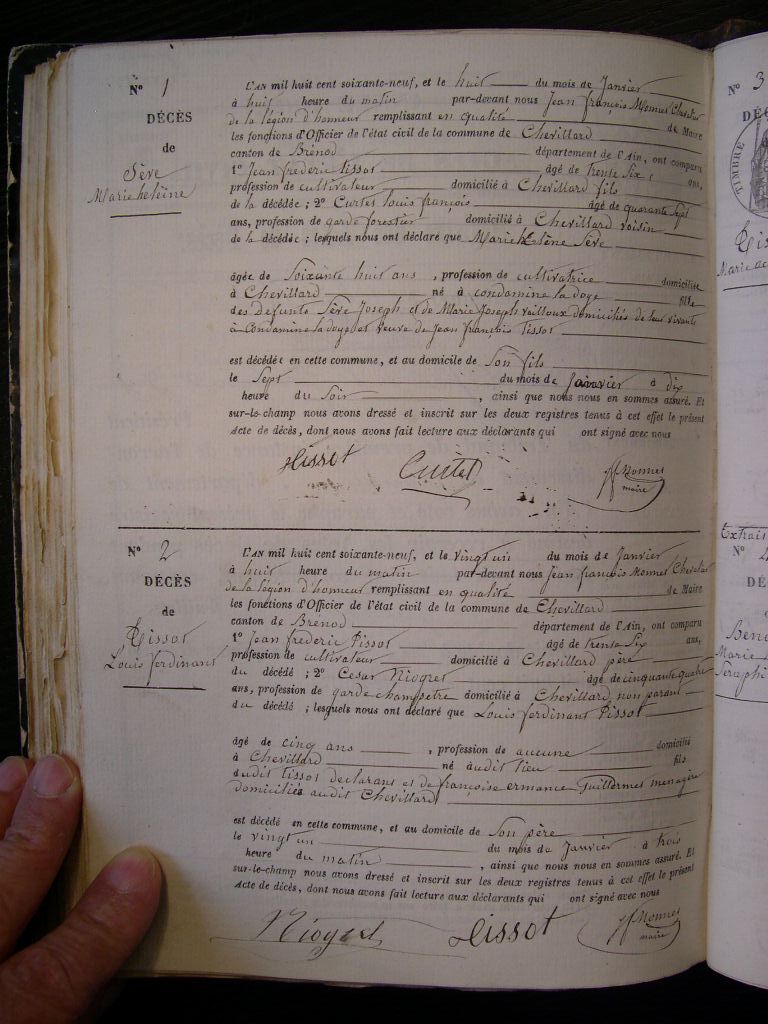 N° 1
DÉCÈS
de
Sève
Marie helèine
L'AN mil huit cent soixante-neuf, et le huit du mois de Janvier
à huit heure du matin par-devant nous Jean françois Monnes Chevalier
de la légion d'honneur remplissant en qualité de Maire
les fonctions d'Officier de l'état civil de la commune de Chevillard
canton de Brénod département de l'Ain, ont comparu
1° Jean frederic tissot âgé de trente Six ans,
profession de cultivateur domicilié à Chevillard fils
de la décédée ; 2° Curtet louis françois âgé de quarante sept
ans, profession de garde forestier domicilié à Chevillard voisin
de la décédée ; lesquels nous ont déclaré que Marie helène Sève
âgée de Soixante huit ans, profession de cultivatrice domiciliée
à Chevillard né à condamine la doye fille
des Defunts Sève Joseph et de Marie Joseph vailloux domiciliés de leur vivant
à Condamine la doye et veuve de Jean françois tissot
est décédée en cette commune, et au domicile de Son fils
le Sept du mois de Janvier à dix
heure du Soir, ainsi que nous nous en sommes assuré. Et
sur-le-champ nous avons dressé et inscrit sur les deux registres tenus à cet effet le présent
Acte de décès, dont nous avons fait lecture aux déclarants qui ont signé avec nous
tissot Curtet Monnes
maire
N° 2
DÉCÈS
de
Tissot
Louis ferdinant
L'AN mil huit cent soixante-neuf, et le vingt un du mois de Janvier
à huit heure du matin par-devant nous Jean françois Monnes Chevalier
de la légion d'honneur remplissant en qualité de Maire
les fonctions d'Officier de l'état civil de la commune de Chevillard
canton de Brénod département de l'Ain, ont comparu
1° Jean frederic Tissot âgé de trente Six ans,
profession de cultivateur domicilié à Chevillard père
du décédé ; 2° Cesar Niogret âgé de cinquante quatre
ans, profession de garde champêtre domicilié à Chevillard, non parant
du décédé ; lesquels nous ont déclaré que Louis ferdinant Tissot
âgé de cinq ans, profession de aucune domicilié
à Chevillard né audit lieu fils
dudit tissot declarans et de françoise ermance Guillermet menagère
domiciliés audit Chevillard
est décédé en cette commune, et au domicile de Son père
le vingt un du mois de Janvier à trois
heure du matin, ainsi que nous nous en sommes assuré. Et
sur-le-champ nous avons dressé et inscrit sur les deux registres tenus à cet effet le présent
Acte de décès, dont nous avons fait lecture aux déclarants qui ont signé avec nous
Niogret tissot Monnes
maire
N° 3
TIMBRE
Extrait
N°